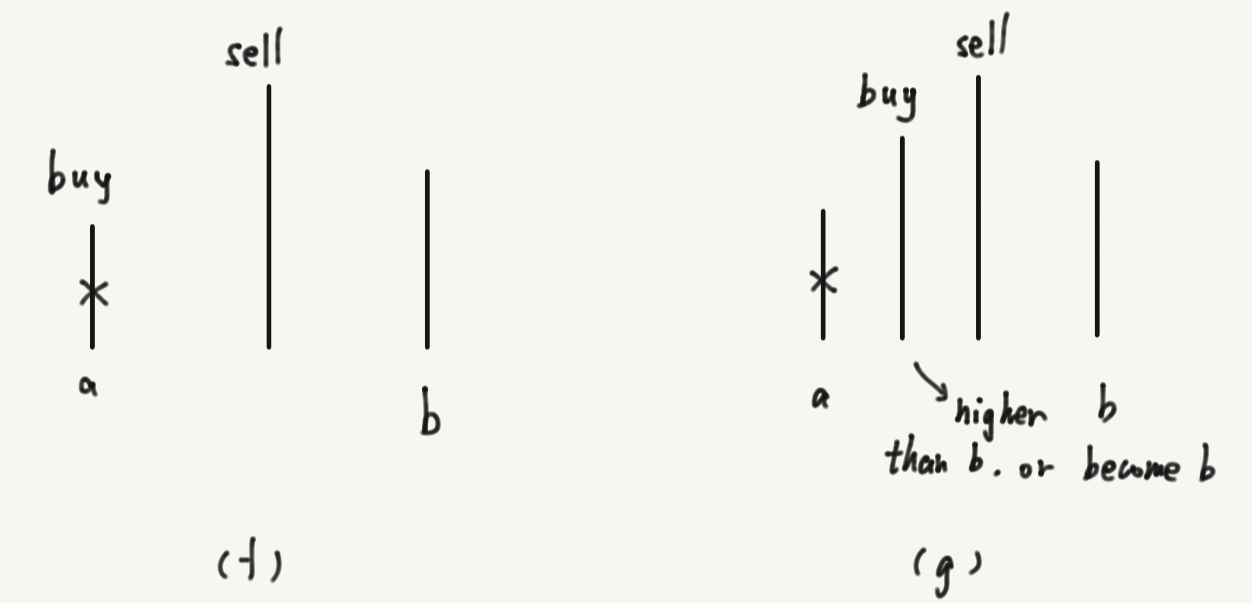 sell
buy
a
b
(f)
sell
buy
a
higher
b
than b. or become b
(g)